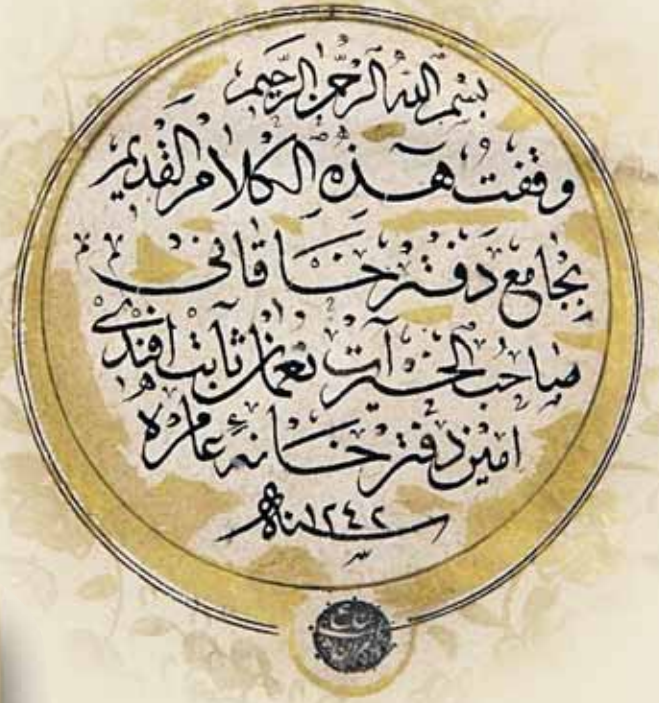 بسم الله الرحمن الرحيم
وقفت هذه الكلام القديم
بجامع دفتر خاقانى
صاحب الخيرات نعمان ثابت افندى
امين دفترخانهٔ عامره
سنه ١٢٤٢